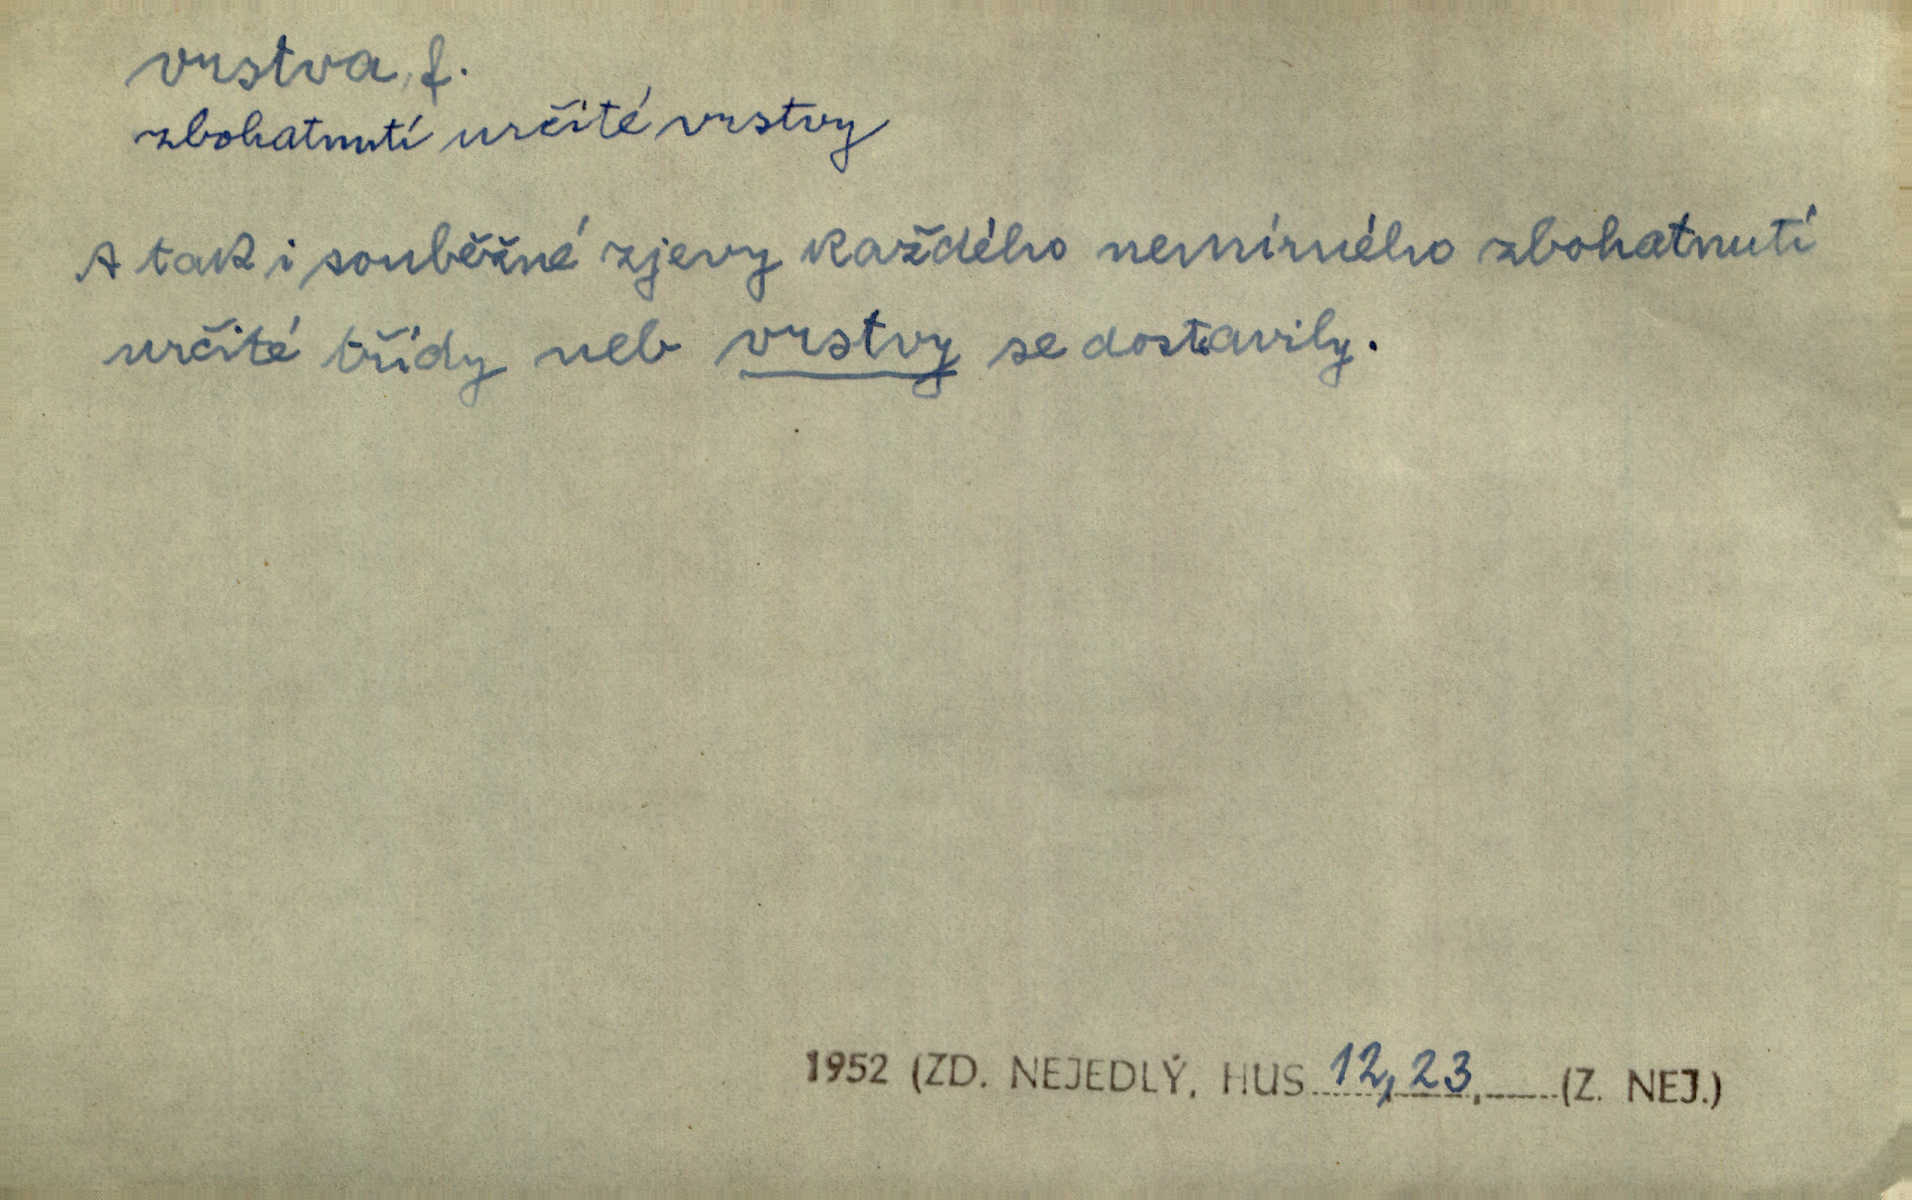 vrstva, f.
zbohatnutí určité vrstvy
A tak i souběžné zjevy každého nemírného zbohatnutí
určité třídy neb vrstvy se dostavily.
1952 (ZD. NEJEDLÝ, HUS 12, 23, (Z. NEJ.)